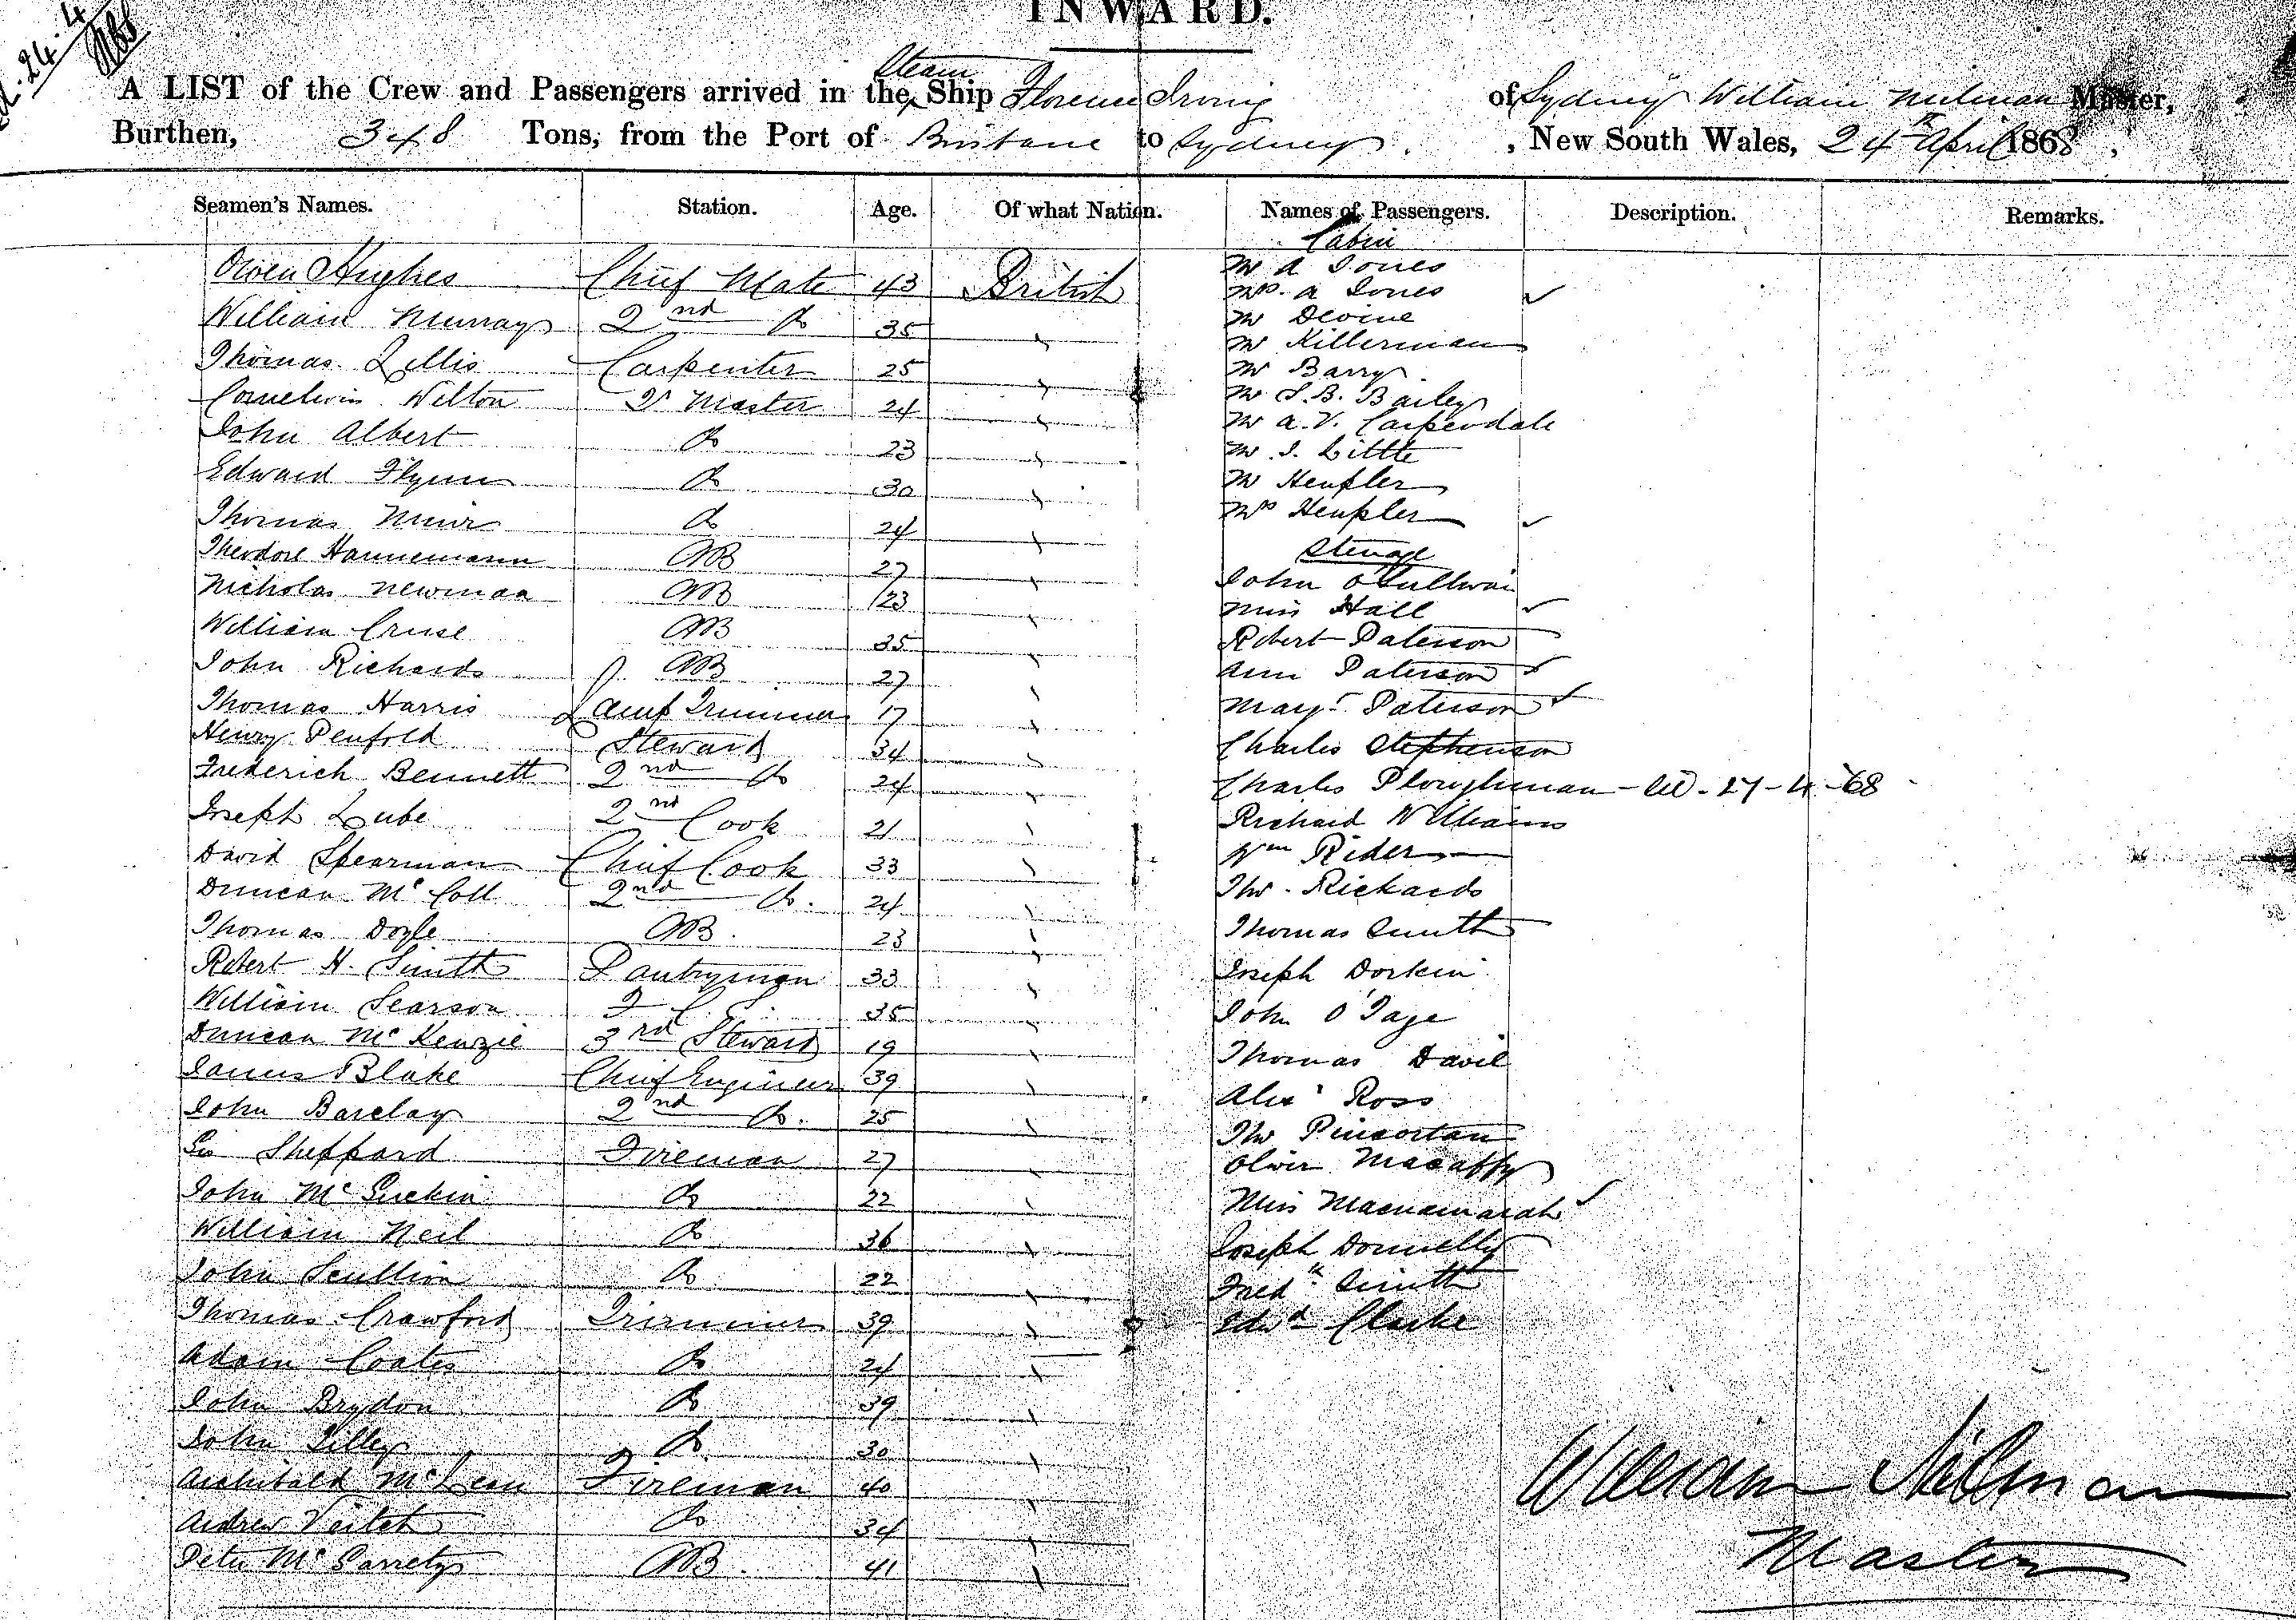 INWARD.
A LIST of the Crew and Passengers arrived in the Steam Ship Florence Irving of Sydney William Milman Master,
Burthen, 348 Tons, from the Port of Brisbane to Sydney. , New South Wales, 24th April 1868,
Seamen's Names. Station. Age. Of what Nation. Names of Passengers. Description. Remarks.
Cabin
Owen Hughes Chief Mate 43 British Mr A Jones
Mrs. A Jones ✓
William Murray 2nd Do 35 " Mr Devine
Mr Killerman
Thomas Lillis Carpenter 25 " Mr Barry
Cornelius Wilton Qr Master 24 " Mr S. B. Bailey
Mr A. V. Carpendale
John Albert Do 23 " Mr J. Little
Edward Flynn Do 30 " Mr Henfler
Thomas Muir Do 24 " Mrs Henfler ✓
Theodore Hannemann AB 27 " Steerage
John O'Sullivan
Nicholas Newman AB 23 " Miss Hall ✓
William Cruse AB 35 " Robert Paterson
John Richards AB 27 " Ann Paterson ✓
Thomas Harris Lamp Trimmer 17 " Margt Paterson ✓
Henry Penfold Steward 34 " Charles Stephenson
Frederich Bennett 2nd Do 24 " Charles Ploughman - 27-4-68
Joseph Lube 2nd Cook 21 " Richard Williams
David Spearman Chief Cook 33 " Wm Rider
Duncan McColl 2nd Do. 24 " Thos. Rickards
Thomas Doyle AB. 23 " Thomas Smith
Robert H. Smith Pantryman 33 " Joseph Dorkin
William Searson 35 " John O'Tage
Duncan McKenzie 3rd Steward 19 " Thomas Davie
James Blake Chief Engineer 39 " Alexr Ross
John Barclay 2nd Do. 25 " Thos
Geo Sheppard Fireman 27 " Oliver Macaffy
John McGuckin Do 22 " Miss Macnamarah ✓
William Neil Do 36 " Joseph Donnelly
John Scullion Do 22 " Fredk Smith
Thomas Crawford Trimmer 39 " Edwd Clarke
Adam Coates Do 24 "
John Brydon Do 39 "
John Lilley Do 30 "
Archibald McLean Fireman 40 "
Andrew Veitch Do 34 "
Peter McGarrety AB. 41 "
William Milman
Master